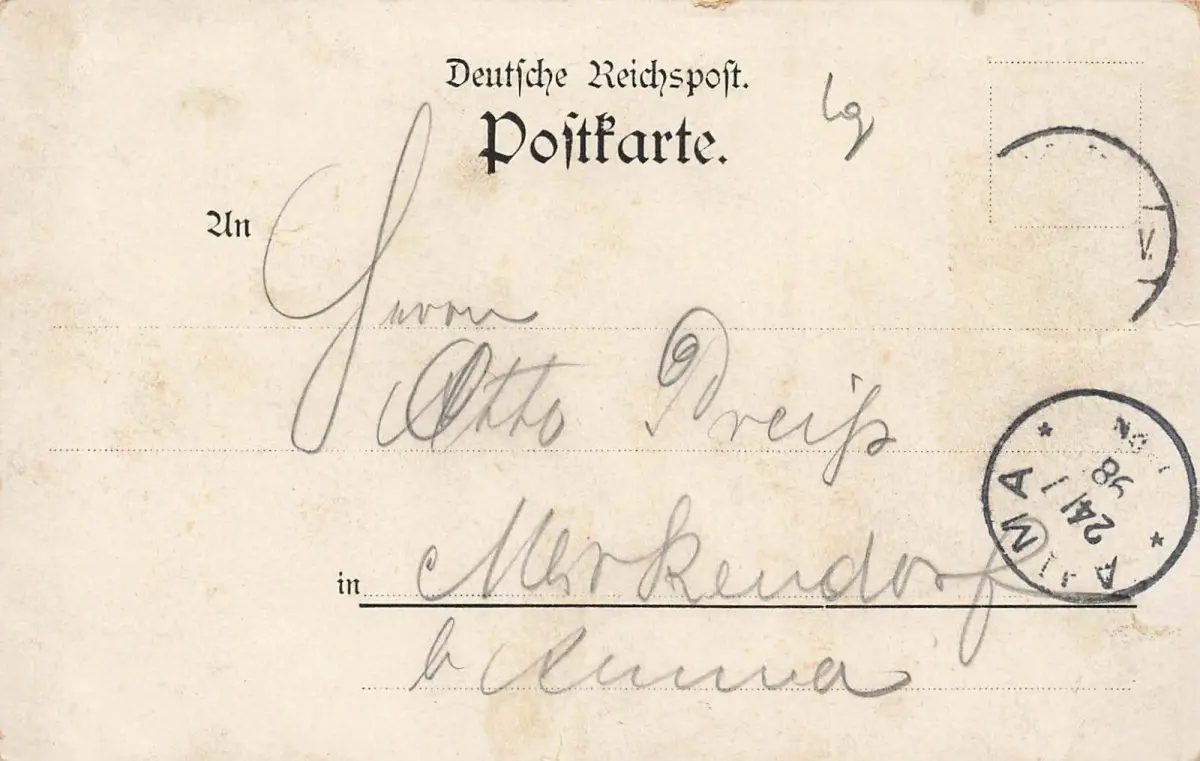 Deutsche Reichspost.
Postkarte.
An
Herrn
Otto Preiß
in Merkendorf
b Auma
V.
AUMA
24/1
98